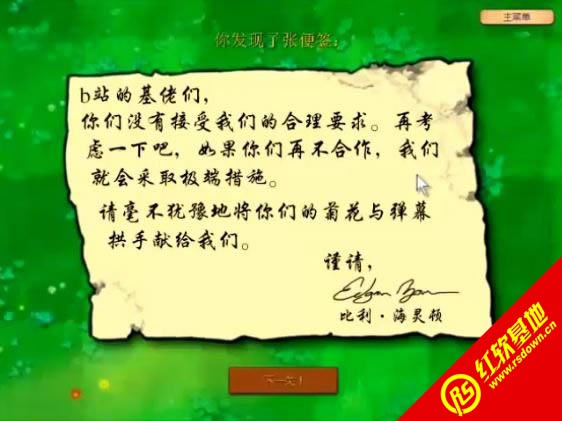 主菜单
你发现了张便签：
b站的基佬们，
你们没有接受我们的合理要求。再考
虑一下吧，如果你们再不合作，我们
就会采取极端措施。
请毫不犹豫地将你们的菊花与弹幕
拱手献给我们。
谨请，
比利·海灵顿
下一关！
RS
红软基地
www.rsdown.cn